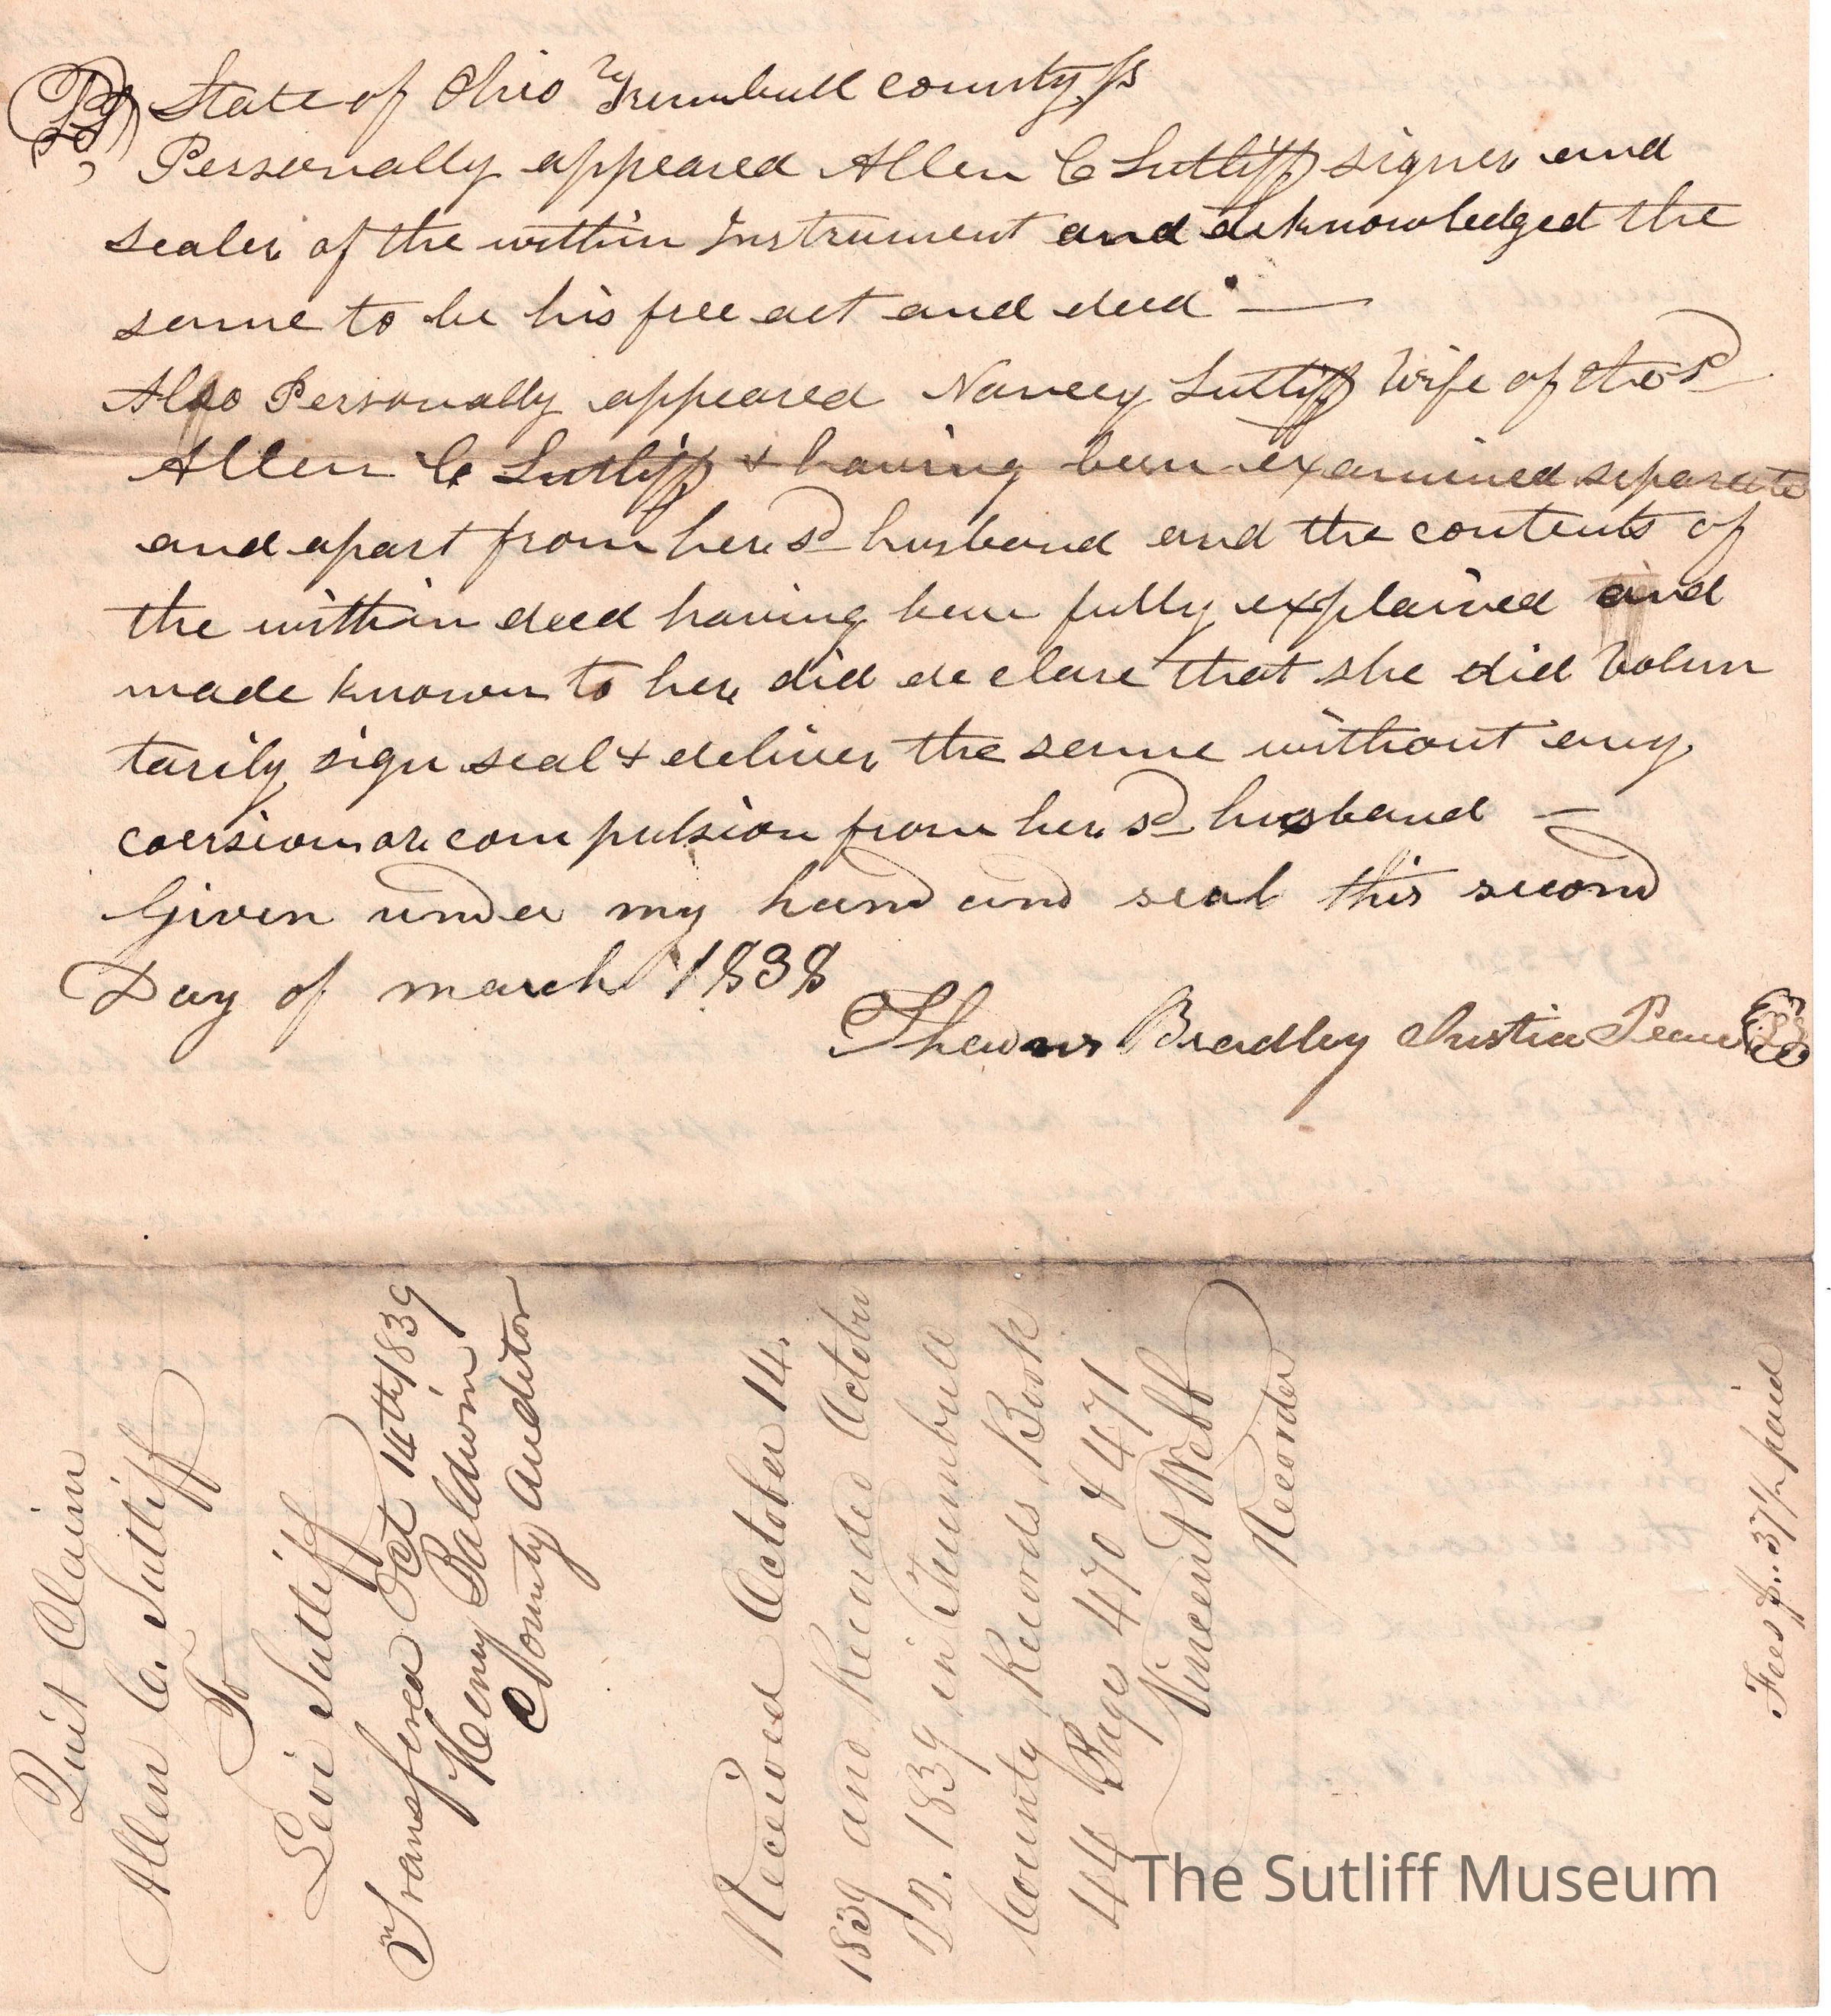 State of Ohio Trumbull county ss
Personally appeared Allen C Sutliff signer and
sealer of the within Instrument and acknowledged the
same to be his free act and deed —
Also Personally appeared Nancy Sutliff Wife of the sd
Allen C Sutliff & having been examined separate
and apart from her sd husband and the contents of
the within deed having been fully explained and
made known to her did declare that she did volun
tarily sign seal & deliver the same without any
coersion or compulsion from her sd husband —
Given under my hand and seal this second
Day of march 1838
Thomas Bradley Justice Peace
Quit Claim
Allen C. Sutliff
To
Levi Sutliff
Transfered Oct 14th 1839
Henry Baldwin
County Auditor
Received October 14.
1839 and Recorded October
22. 1839 in Trumbull
County Records Book
44 Pages 470 & 471
Vincent Webb
Recorder
Fees $..37½ paid
The Sutliff Museum